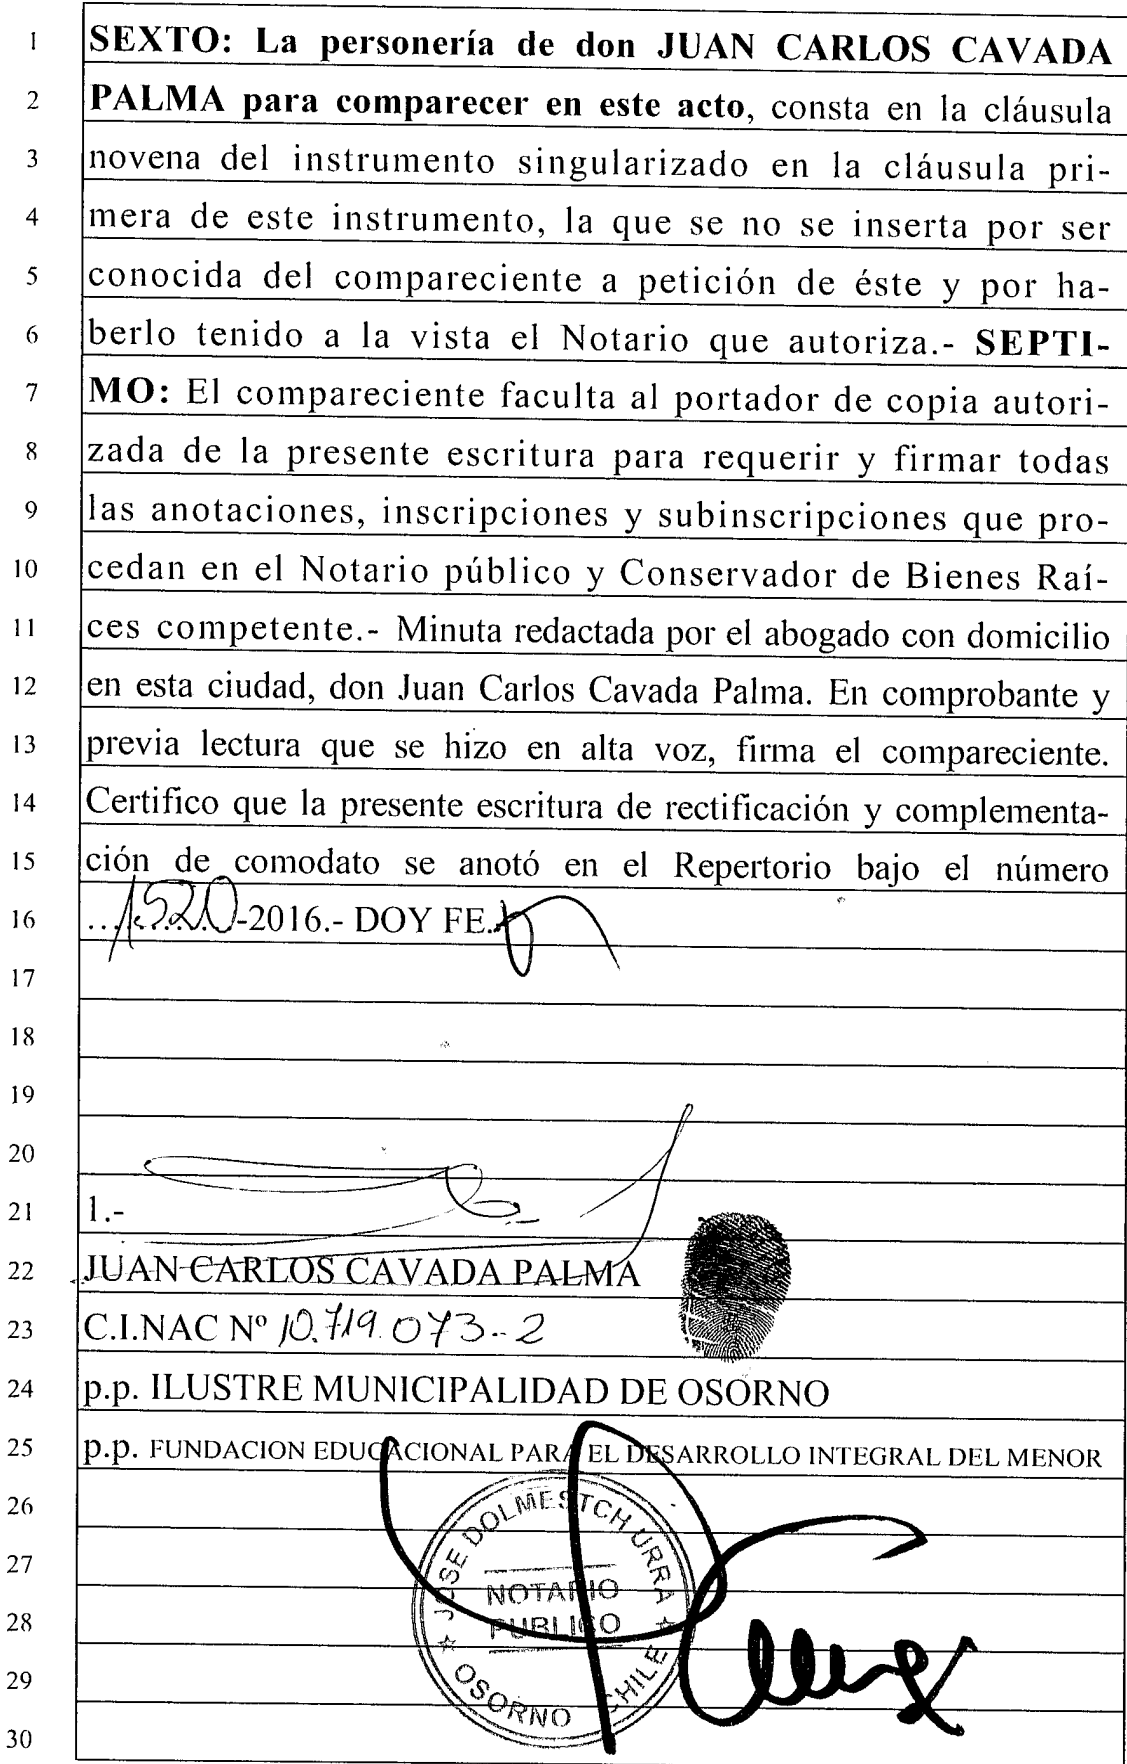 1 SEXTO: La personería de don JUAN CARLOS CAVADA
2 PALMA para comparecer en este acto, consta en la cláusula
3 novena del instrumento singularizado en la cláusula pri-
4 mera de este instrumento, la que se no se inserta por ser
5 conocida del compareciente a petición de éste y por ha-
6 berlo tenido a la vista el Notario que autoriza.- SEPTI-
7 MO: El compareciente faculta al portador de copia autori-
8 zada de la presente escritura para requerir y firmar todas
9 las anotaciones, inscripciones y subinscripciones que pro-
10 cedan en el Notario público y Conservador de Bienes Raí-
11 ces competente.- Minuta redactada por el abogado con domicilio
12 en esta ciudad, don Juan Carlos Cavada Palma. En comprobante y
13 previa lectura que se hizo en alta voz, firma el compareciente.
14 Certifico que la presente escritura de rectificación y complementa-
15 ción de comodato se anotó en el Repertorio bajo el número
16 ...1.520-2016.- DOY FE.
17
18
19
20
21 1.-
22 JUAN CARLOS CAVADA PALMA
23 C.I.NAC Nº 10.719.073-2
24 p.p. ILUSTRE MUNICIPALIDAD DE OSORNO
25 p.p. FUNDACION EDUCACIONAL PARA EL DESARROLLO INTEGRAL DEL MENOR
26
27
28
29
30
JOSE DOLMESTCH URRA
NOTARIO
PUBLICO
OSORNO CHILE